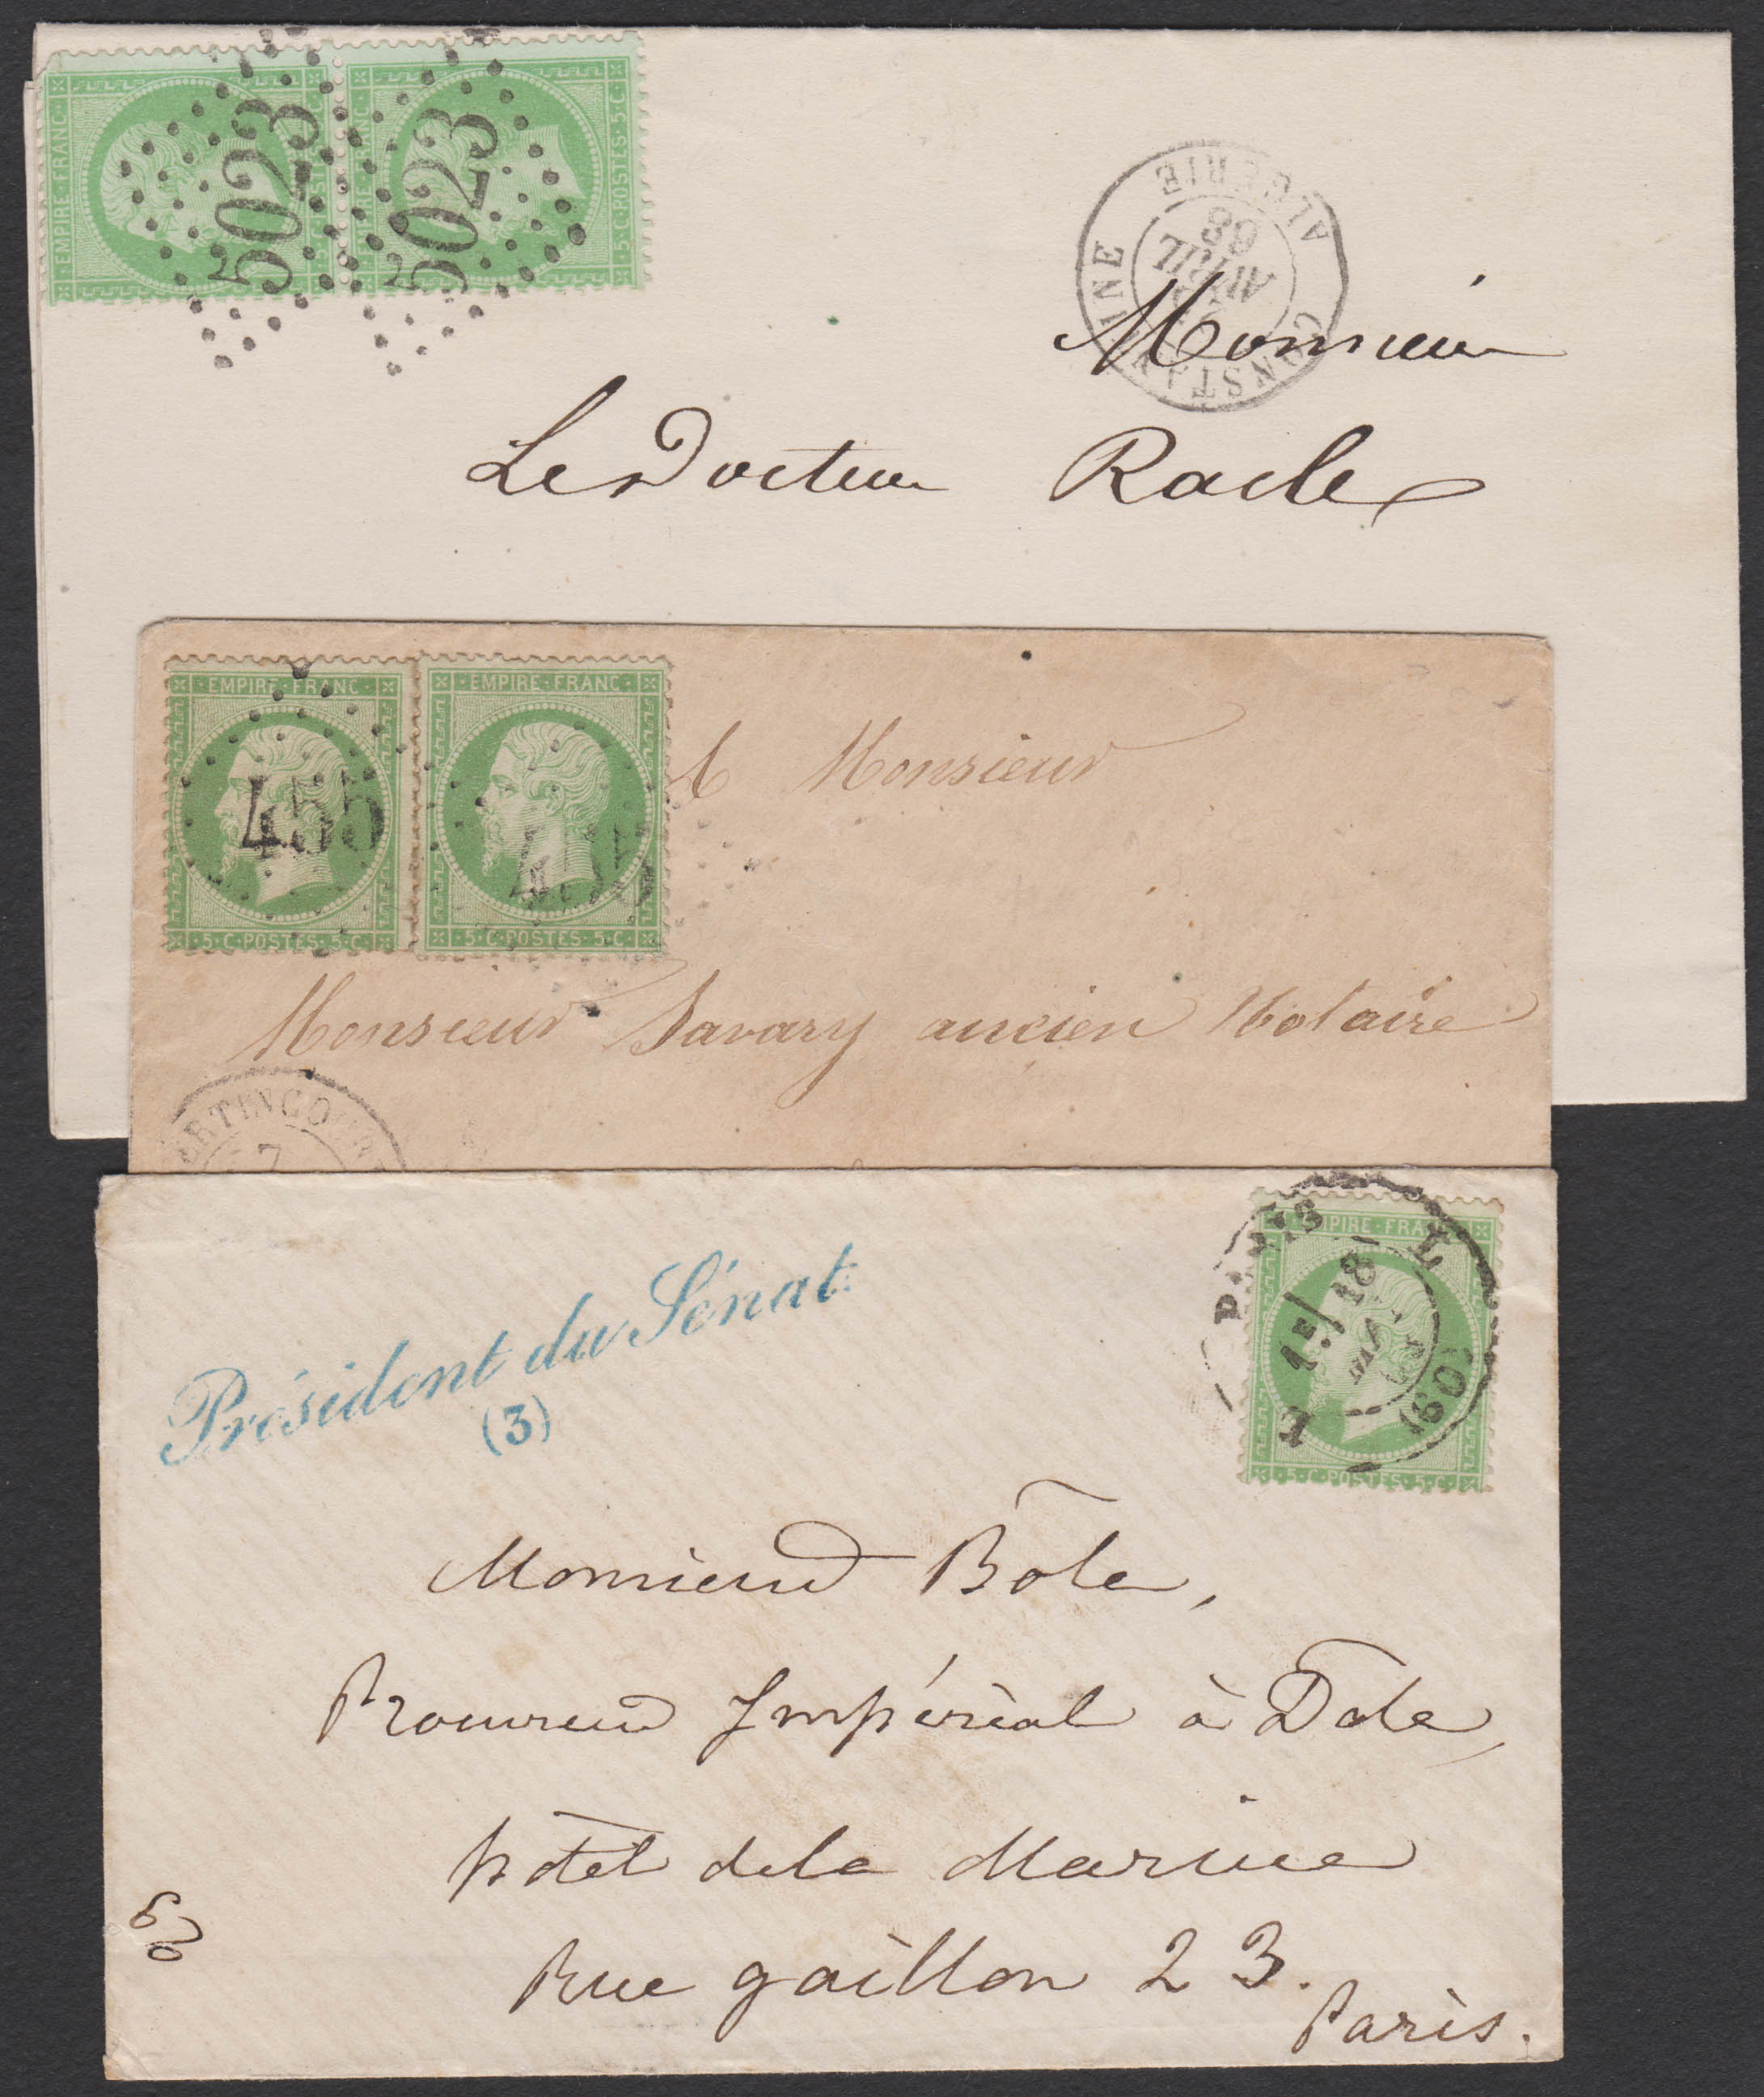 EMPIRE·FRANC·
·5·C·POSTES·5·C·
5023
5023
CONSTANTINE
ALGERIE
AVRIL
68
Monsieur
Le Docteur Racle
EMPIRE·FRANC·
455
·5·C·POSTES·5·C·
EMPIRE·FRANC·
455
·5·C·POSTES·5·C·
A Monsieur
Monsieur Savary ancien Notaire
BERTINCOURT
7
EMPIRE·FRANC
PARIS
1E/
18
(60)
·5·C·POSTES·5·C·
Président du Sénat
(3)
Monsieur Bôle,
Procureur Impérial à Dole,
hôtel de la Marine
Rue gaillon 23.
Paris.